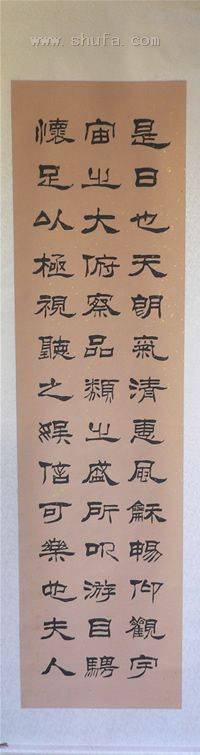 www.shufa.com
是日也天朗氣清惠風龢暢仰觀宇
宙之大俯察品類之盛所以游目騁
懷足以極視聽之娛信可樂也夫人